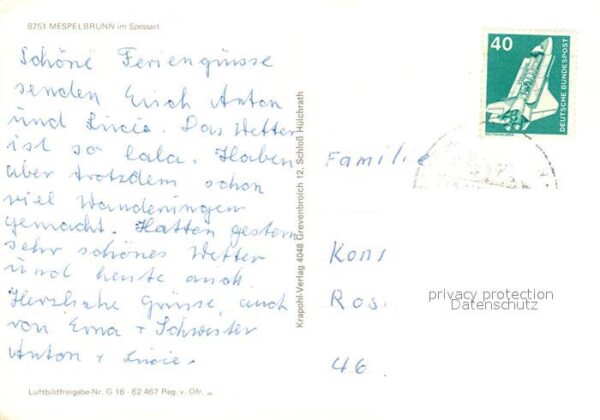 8751 MESPELBRUNN im Spessart
Schöne Feriengrüsse
senden Euch Anton
und Lucie. Das Wetter
ist so lala. Haben
aber trotzdem schon
viel Wanderungen
gemacht. Hatten gestern
sehr schönes Wetter
und heute auch.
Herzliche Grüsse, auch
von Erna + Schwester
Anton + Lucie.
Luftbildfreigabe-Nr. G 16 - 62 467 Reg. v. Ofr.
Krapohl-Verlag 4048 Grevenbroich 12, Schloß Hülchrath
40
DEUTSCHE BUNDESPOST
Familie
Kons
Ros
46
privacy protection
Datenschutz